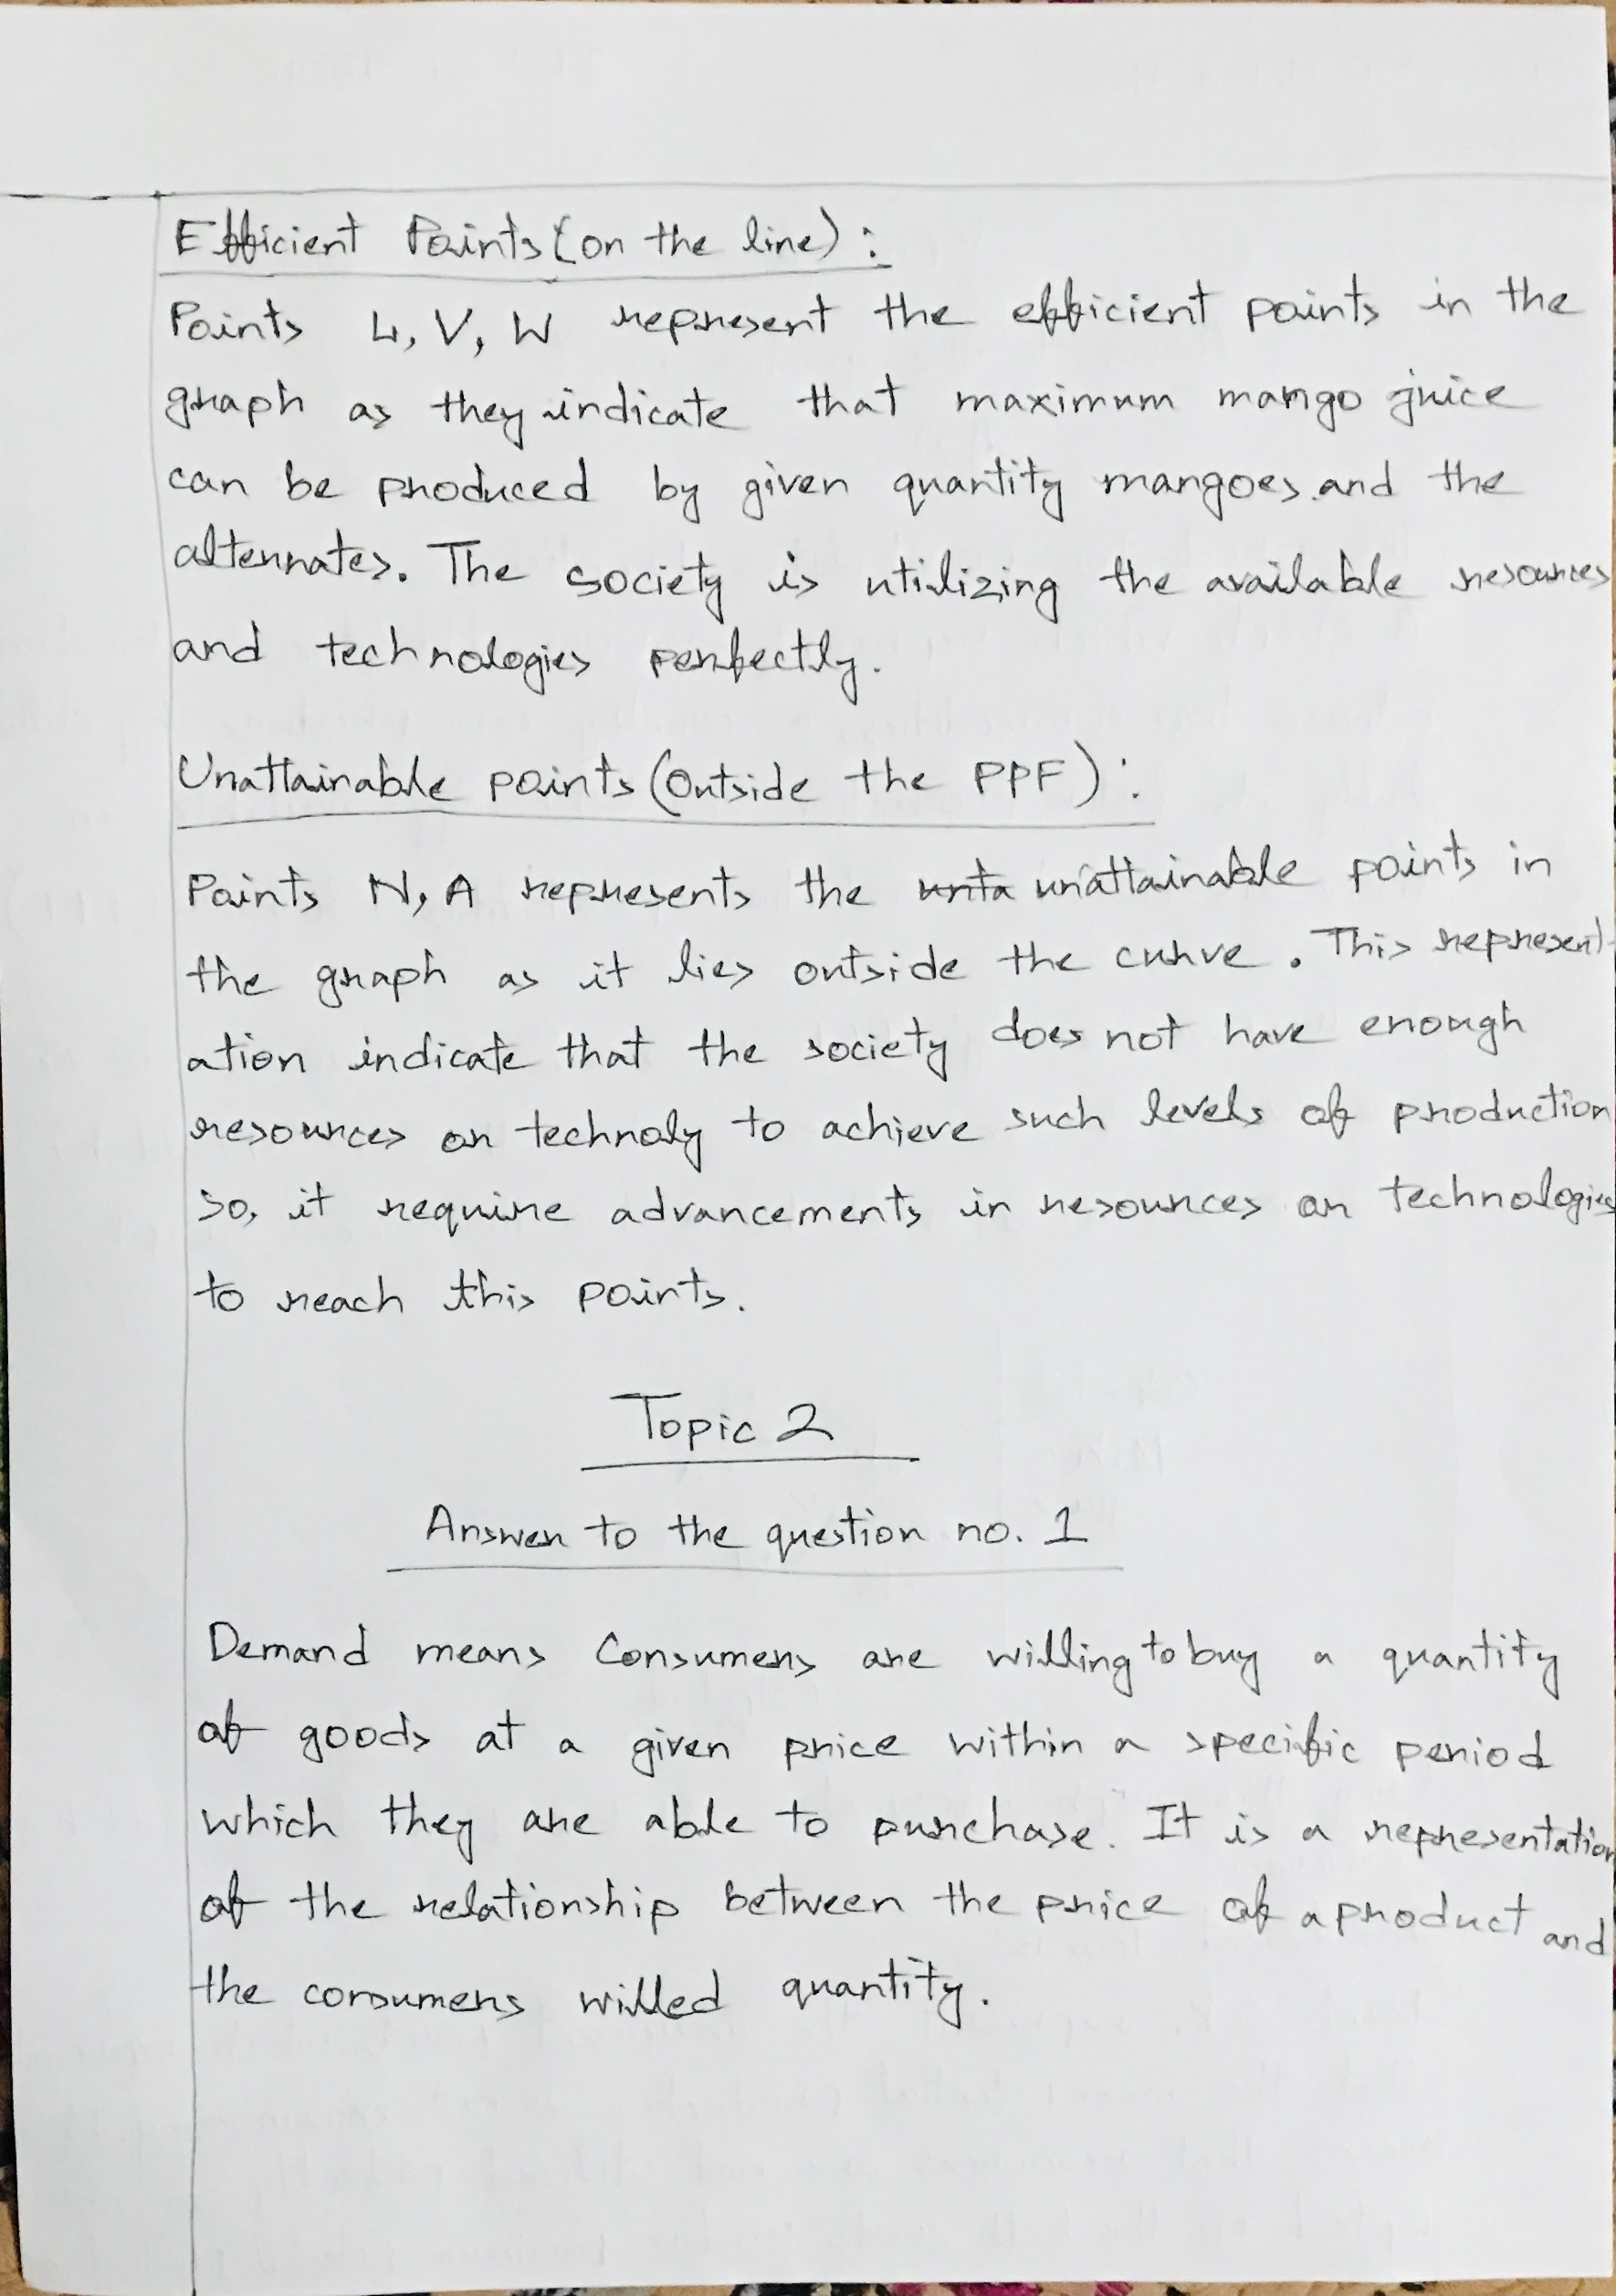 Efficient Points (on the line) :
Points 4, V, W represent the efficient points in the
graph as they indicate that maximum mango juice
can be produced by given quantity mangoes and the
alternates. The society is utilizing the available resources
and technologies perfectly.
Unattainable points (Outside the PPF) :
Points N, A represents the unta unattainable points in
the graph as it lies outside the curve. This represent-
ation indicate that the society does not have enough
resources or technoly to achieve such levels of production
so, it require advancements in resources or technologies
to reach this points.
Topic 2
Answer to the question no. 1
Demand means Consumers are willing to buy a quantity
of goods at a given price within a specific period
which they are able to purchase. It is a representation
of the relationship between the price of a product and
the consumers willed quantity.